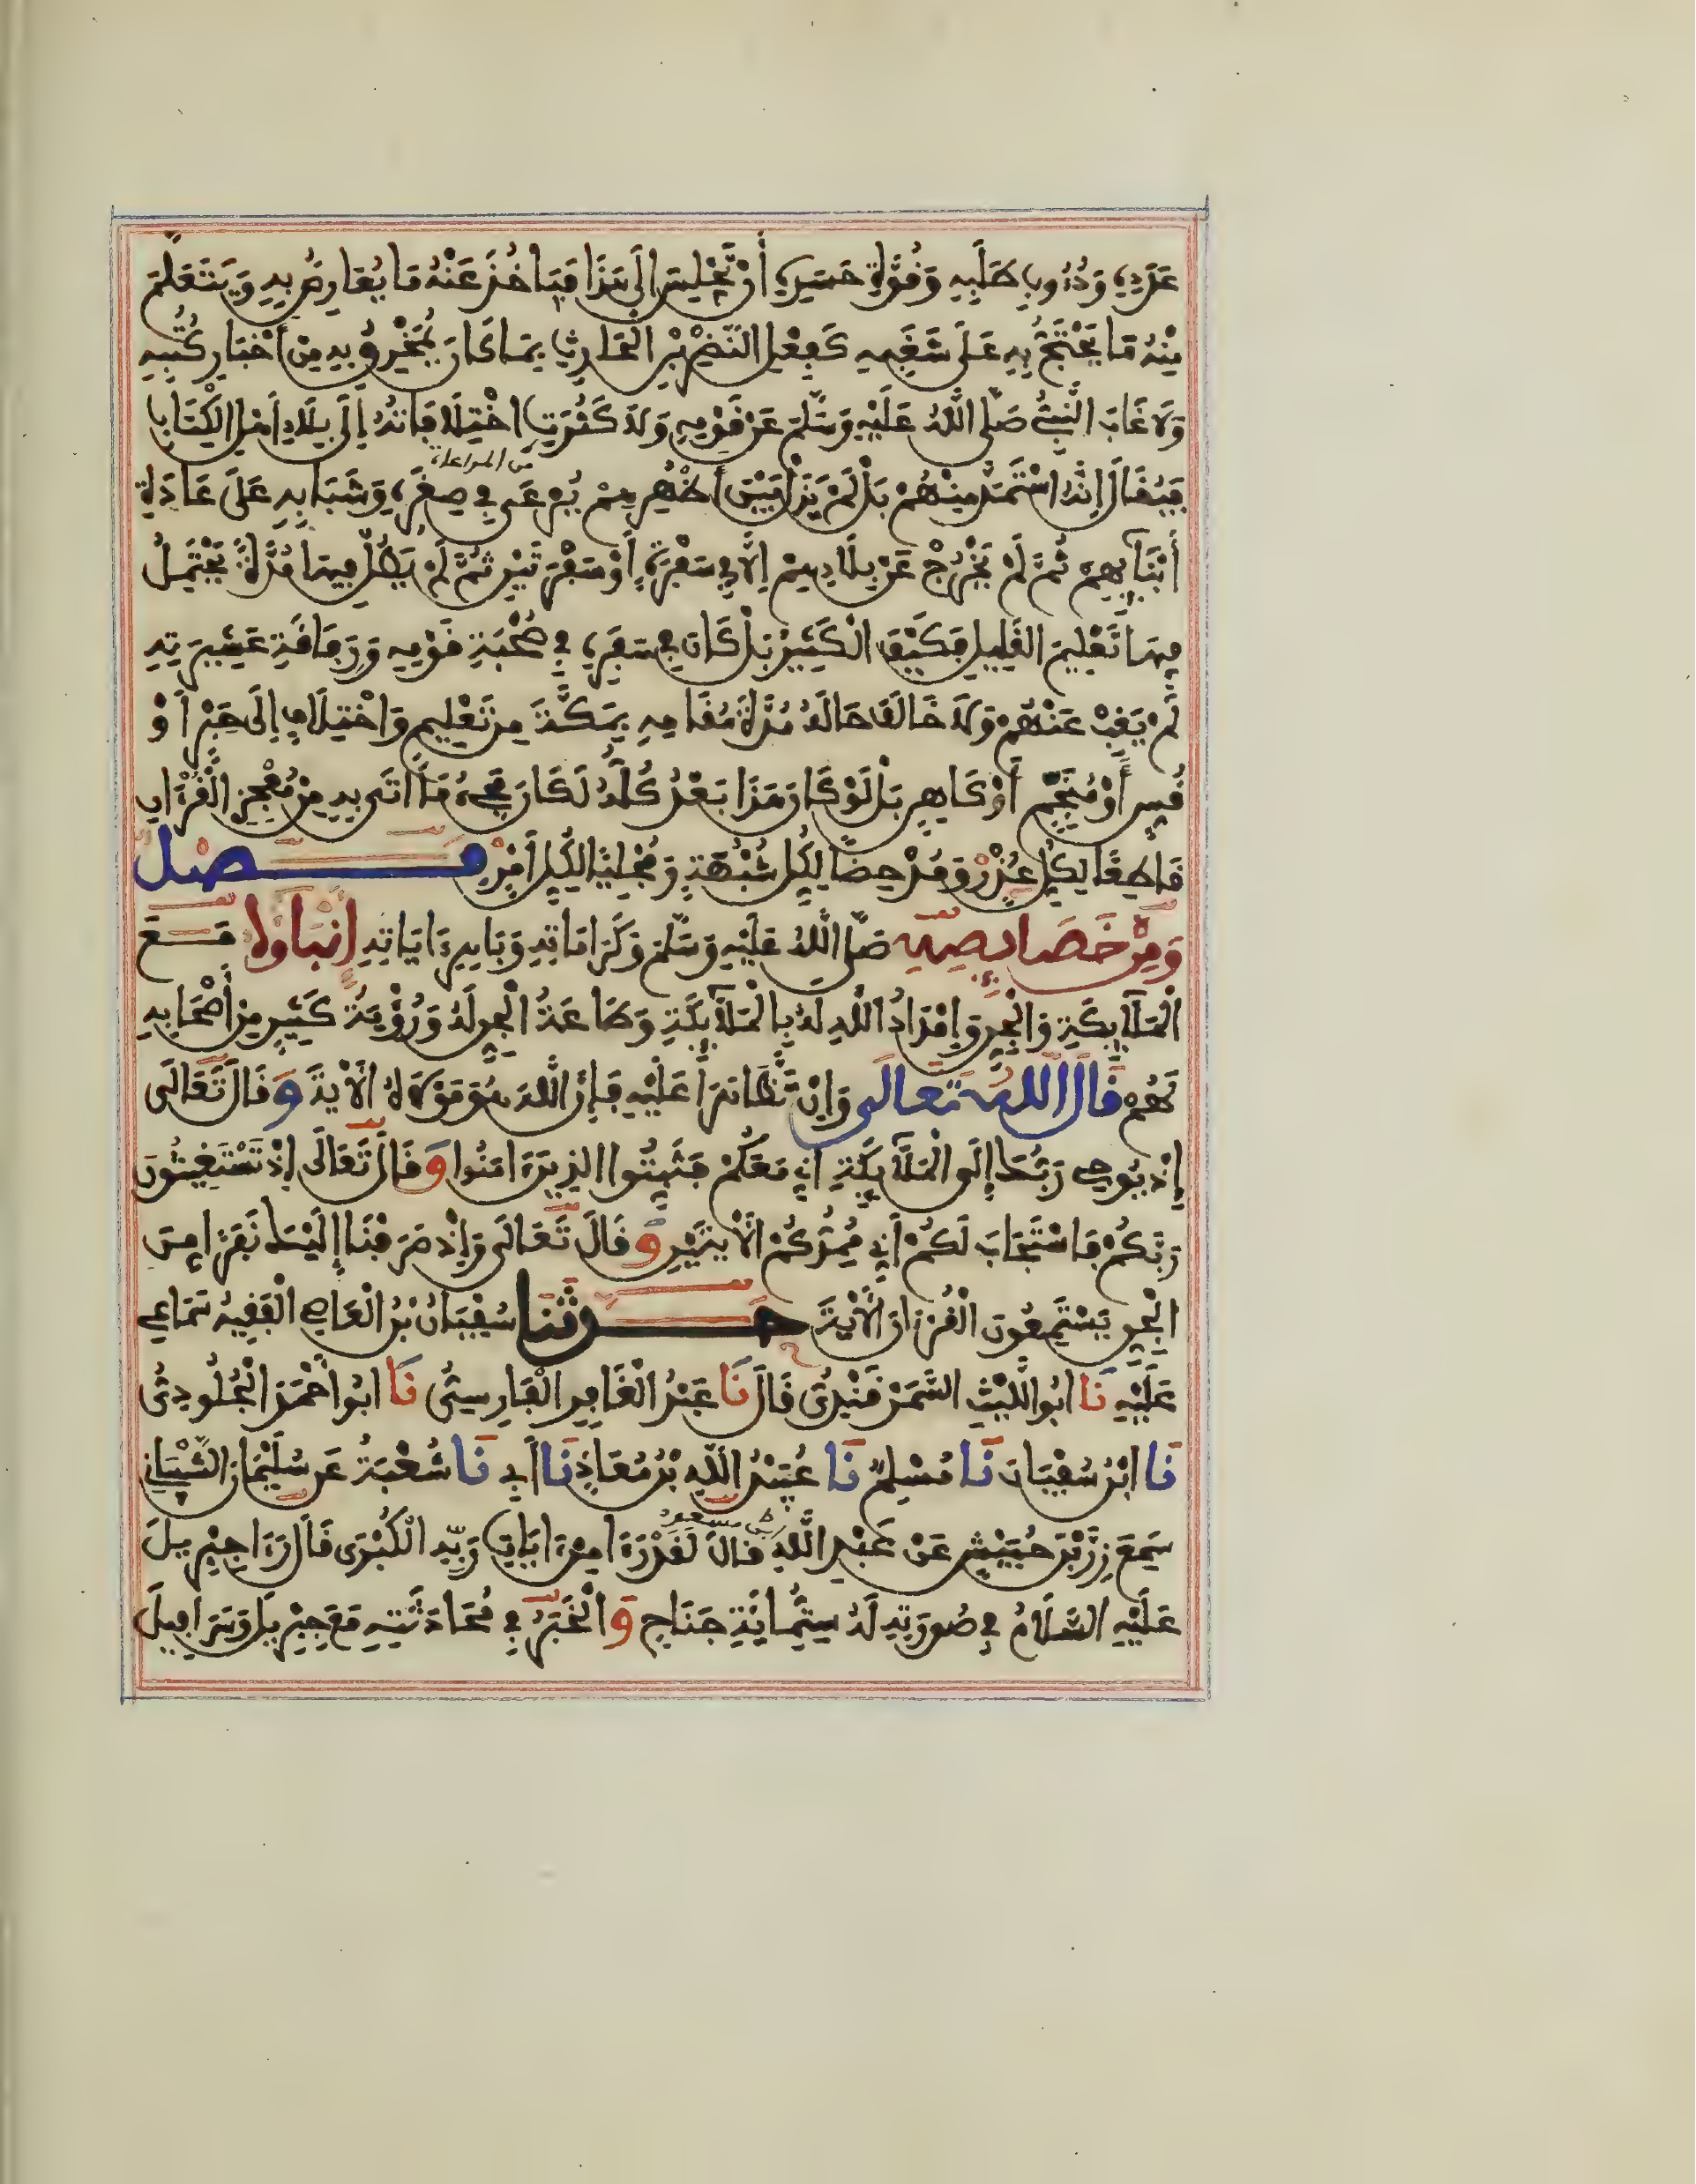 عَدَدِهِ وَدُءُوبِ طَلَبِهِ وَقُوَّةِ حَسَدِهِ أَنْ يَّجْلِسَ إِلَى هَذَا فَيَاخُذَ عَنْهُ مَا يُعَارِضُ بِهِ وَيَتَعَلَّمَ
مِنْهُ مَا يَحْتَجُّ بِهِ عَلَى شَغَبِهِ كَفِعْلِ النَّضْرِ بْنِ الْحَارِثِ بِمَا كَانَ يُمَخْرِقُ بِهِ مِنْ أَخْبَارِ كُتُبِهِ
وَلَا غَابَ النَّبِيُّ صَلَّى اللَّهُ عَلَيْهِ وَسَلَّمَ عَنْ قَوْمِهِ وَلَا كَثُرَتِ اخْتِلَافَاتُهُ إِلَى بِلَادِ أَهْلِ الْكِتَابِ
من المراعاة
فَيُقَالَ إِنَّهُ اسْتَمَدَّ مِنْهُمْ بَلْ لَمْ يَزَلْ بَيْنَ أَظْهُرِهِمْ يَرْعَى فِي صِغَرِهِ وَشَبَابِهِ عَلَى عَادَةِ
أَبْنَائِهِمْ ثُمَّ لَمْ يَخْرُجْ عَنْ بِلَادِهِمْ إِلَّا فِي سَفْرَةٍ أَوْ سَفْرَتَيْنِ ثُمَّ لَمْ يَطُلْ فِيهَا مُدَّةً يَحْتَمِلُ
فِيهَا تَعْلِيمَ الْقَلِيلِ فَكَيْفَ الْكَثِيرُ بَلْ كَانَ فِي سَفَرِهِ فِي صُحْبَةِ قَوْمِهِ وَرَفَاقَةِ عَشِيرَتِهِ
لَمْ يَغِبْ عَنْهُمْ وَلَا خَالَفَ حَالَهُ مُدَّةَ مُقَامِهِ بِمَكَّةَ مِنْ تَعْلِيمٍ وَاخْتِلَافٍ إِلَى حَبْرٍ أَوْ
قُسٍّ أَوْ مُنَجِّمٍ أَوْ كَاهِنٍ بَلْ لَوْ كَانَ هَذَا بَعْدُ كُلُّهُ لَكَانَ مَجِيءُ مَا أَتَى بِهِ مِنْ مُعْجِزِ الْقُرْءَانِ
قَاطِعًا لِكُلِّ عُذْرٍ وَمُدْحِضًا لِكُلِّ شُبْهَةٍ وَمُجْلِيًا لِكُلِّ أَمْرٍ فصل
وَمِنْ خَصَائِصِهِ صَلَّى اللَّهُ عَلَيْهِ وَسَلَّمَ وَكَرَامَاتِهِ وَبَاهِرِ ءَايَاتِهِ إِنْبَاؤُهُ مَعَ
الْمَلَائِكَةِ وَالْجِنِّ وَإِمْدَادُ اللَّهِ لَهُ بِالْمَلَائِكَةِ وَطَاعَةُ الْجِنِّ لَهُ وَرُؤْيَةُ كَثِيرٍ مِنْ أَصْحَابِهِ
لَهُمْ قَالَ اللَّهُ تَعَالَى وَإِنْ تَظَّاهَرَا عَلَيْهِ فَإِنَّ اللَّهَ هُوَ مَوْلَاهُ الْآيَةَ وَقَالَ تَعَالَى
إِذْ يُوحِي رَبُّكَ إِلَى الْمَلَائِكَةِ أَنِّي مَعَكُمْ فَثَبِّتُوا الَّذِينَ ءَامَنُوا وَقَالَ تَعَالَى إِذْ تَسْتَغِيثُونَ
رَبَّكُمْ فَاسْتَجَابَ لَكُمْ أَنِّي مُمِدُّكُمْ الْآيَتَيْنِ وَقَالَ تَعَالَى وَإِذْ صَرَفْنَا إِلَيْكَ نَفَرًا مِنَ
الْجِنِّ يَسْتَمِعُونَ الْقُرْءَانَ الْآيَةَ حَدَّثَنَا سُفْيَانُ بْنُ الْعَاصِي الْفَقِيهُ سَمَاعِي
عَلَيْهِ نَا أَبُو اللَّيْثِ السَّمَرْقَنْدِيُّ قَالَ نَا عَبْدُ الْغَافِرِ الْفَارِسِيُّ نَا أَبُو أَحْمَدَ الْجُلُودِيُّ
نَا ابْنُ سُفْيَانَ نَا مُسْلِمٌ نَا عُبَيْدُ اللَّهِ بْنُ مُعَاذٍ نَا أَبِي نَا شُعْبَةُ عَنْ سُلَيْمَانَ الشَّيْبَانِي
سَمِعَ زِرَّ بْنَ حُبَيْشٍ عَنْ عَبْدِ اللَّهِ قَالَ لَقَدْ رَءَا مِنْ ءَايَاتِ رَبِّهِ الْكُبْرَى قَالَ رَءَا جِبْرِيلَ
عَلَيْهِ السَّلَامُ فِي صُورَتِهِ لَهُ سِتُّمِائَةِ جَنَاحٍ وَالْخَبَرُ فِي مُحَادَثَتِهِ مَعَ جِبْرِيلَ وَإِسْرَافِيلَ